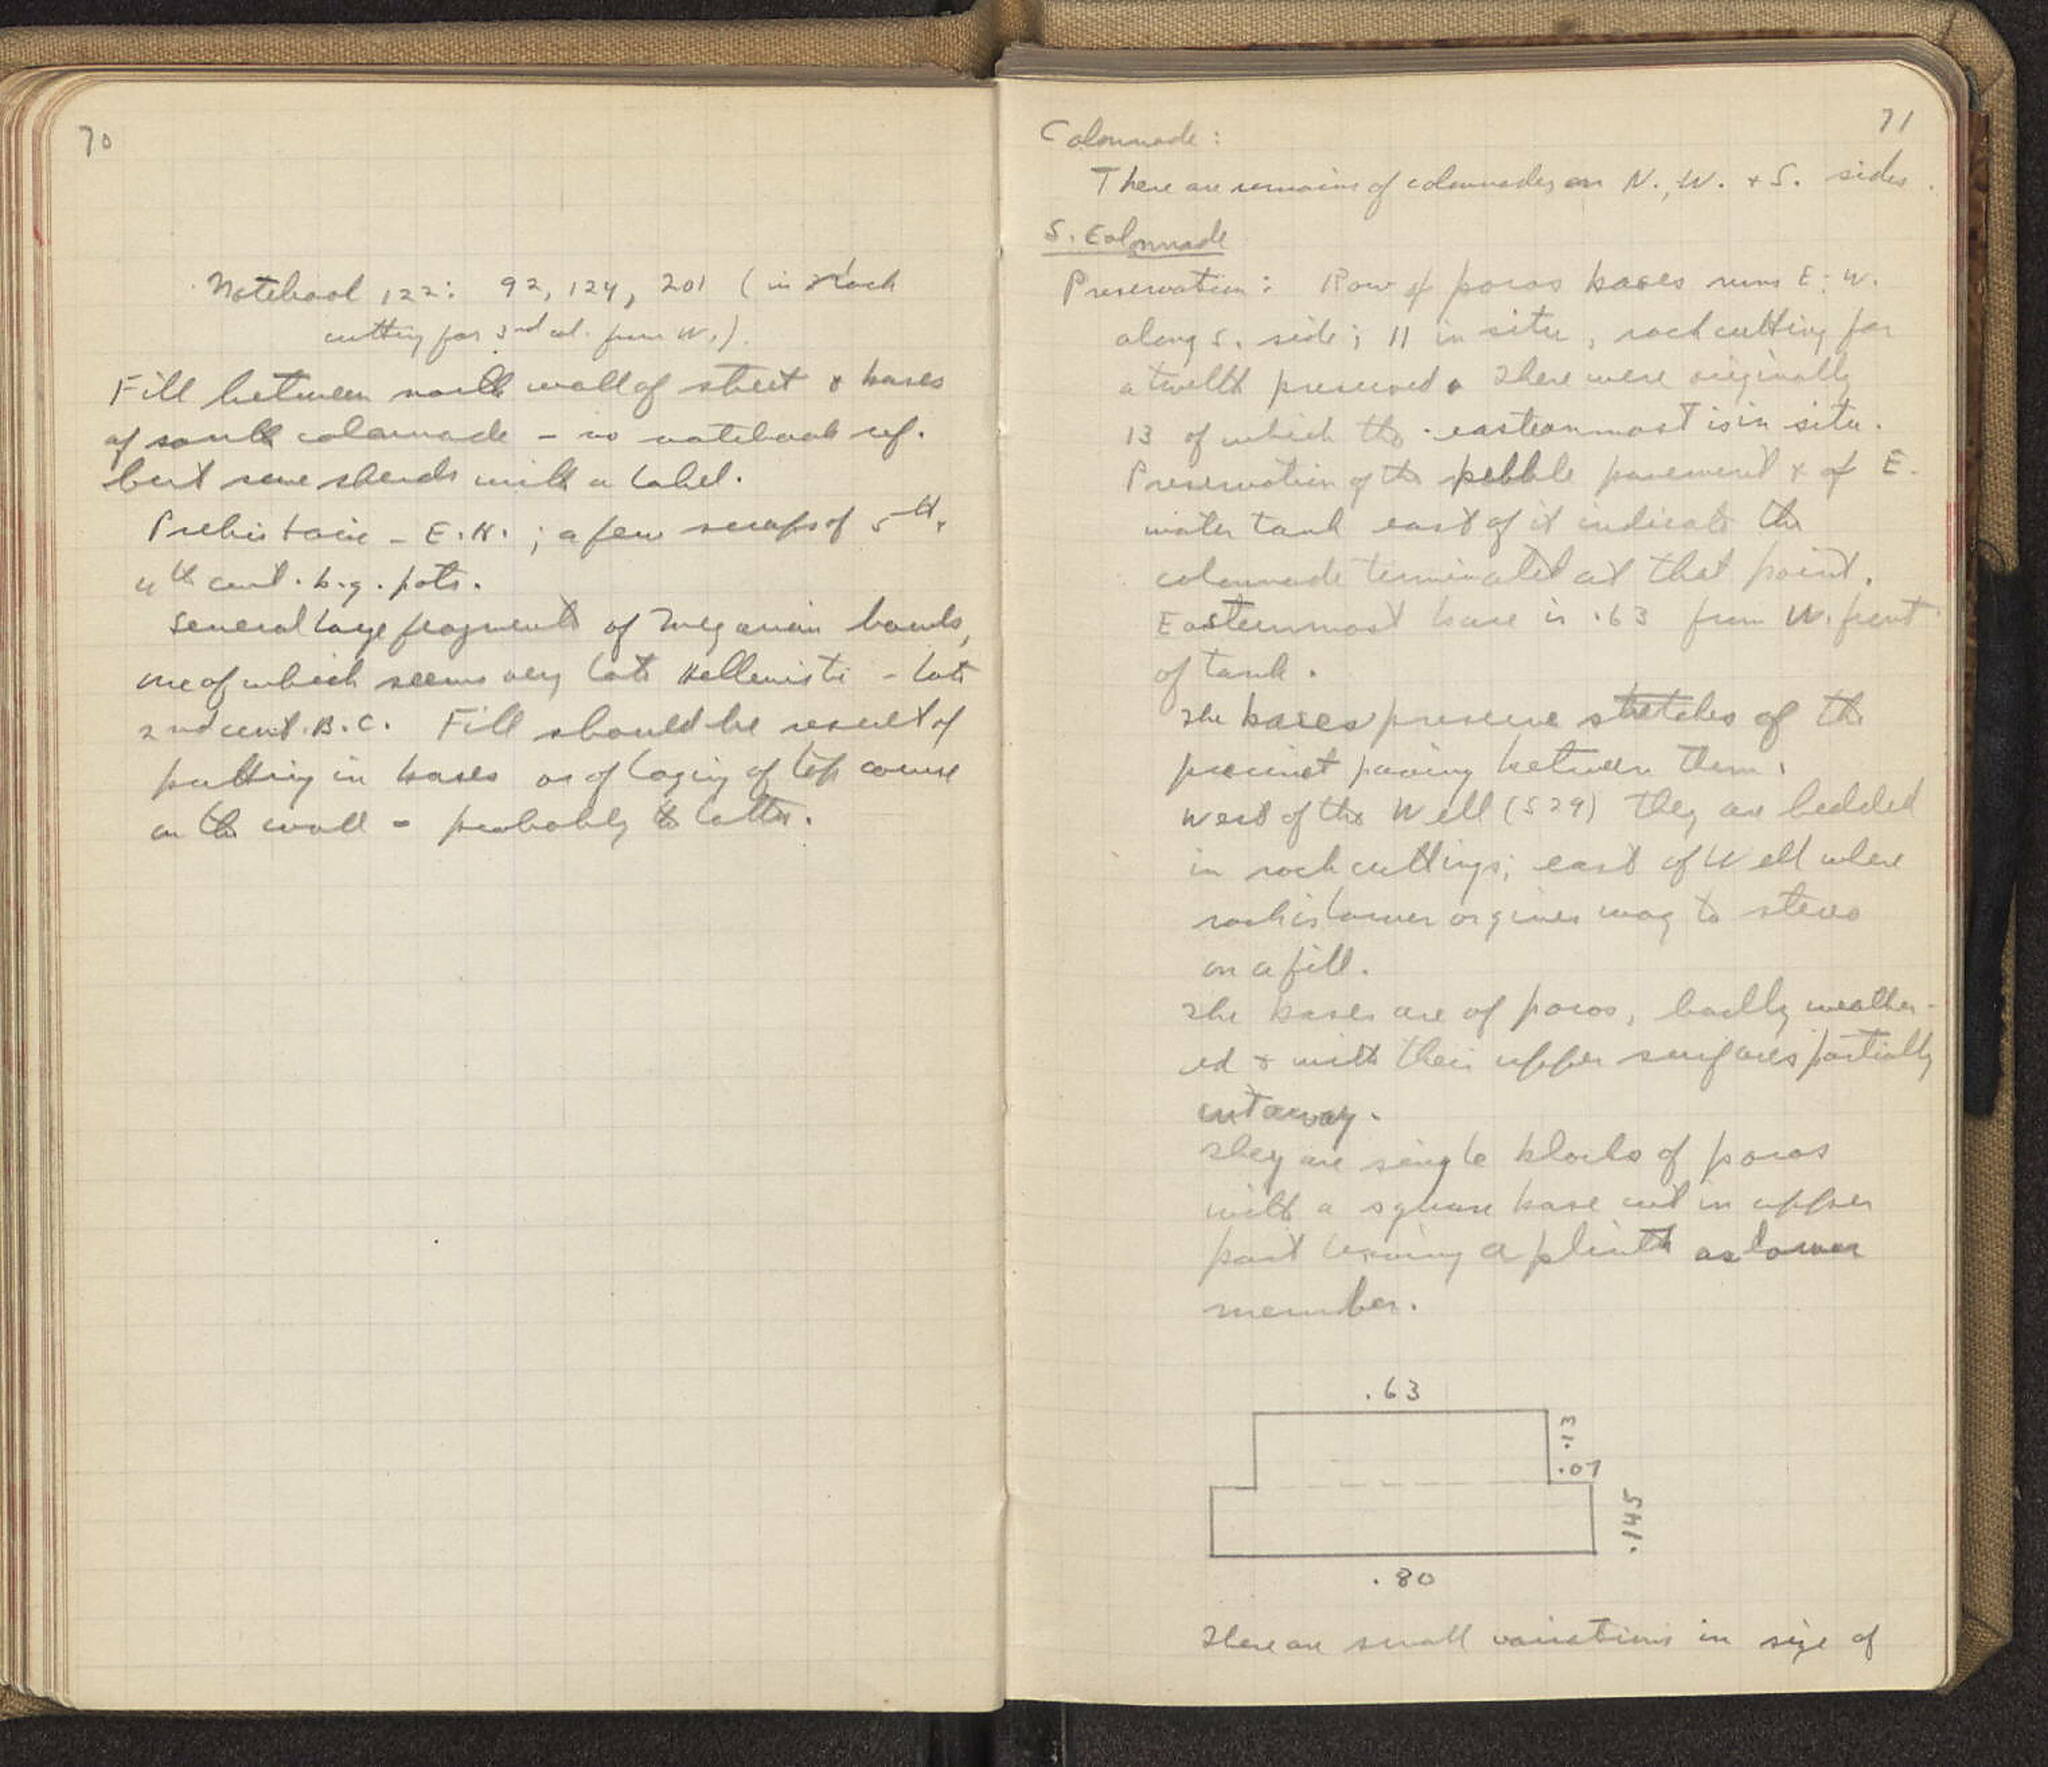 70
Notebook 122: 92, 124, 201 (in rock
cutting for 3rd col. from W.).
Fill between north wall of street & bases
of south colonnade – no notebook ref.
but some sherds with a label.
Prehistoric – E.H.; a few scraps of 5th,
4th cent. b.g. pots.
Several large fragments of Megarian bowls,
one of which seems very late Hellenistic – late
2nd cent. B.C. Fill should be result of
putting in bases or of laying of top course
on the wall – probably the latter.
71
Colonnade:
There are remains of colonnades on N., W. + S. sides.
S. Colonnade
Preservation: Row of poros bases runs E.-W.
along S. side; 11 in situ, rock cutting for
a twelfth preserved. There were originally
13 of which the easternmost is in situ.
Preservation of the pebble pavement & of E.
water tank east of it indicate the
colonnade terminated at that point.
Easternmost base is .63 from W. front
of tank.
The bases preserve stretches of the
precinct paving between them.
West of the Well (S29) they are bedded
in rock cuttings; east of Well where
rock is lower or gives way to stereo
on a fill.
The bases are of poros, badly weather-
ed & with their upper surfaces partially
cut away.
They are single blocks of poros
with a square base cut in upper
part leaving a plinth as lower
member.
.63
.13
.07
.145
.80
There are small variations in size of